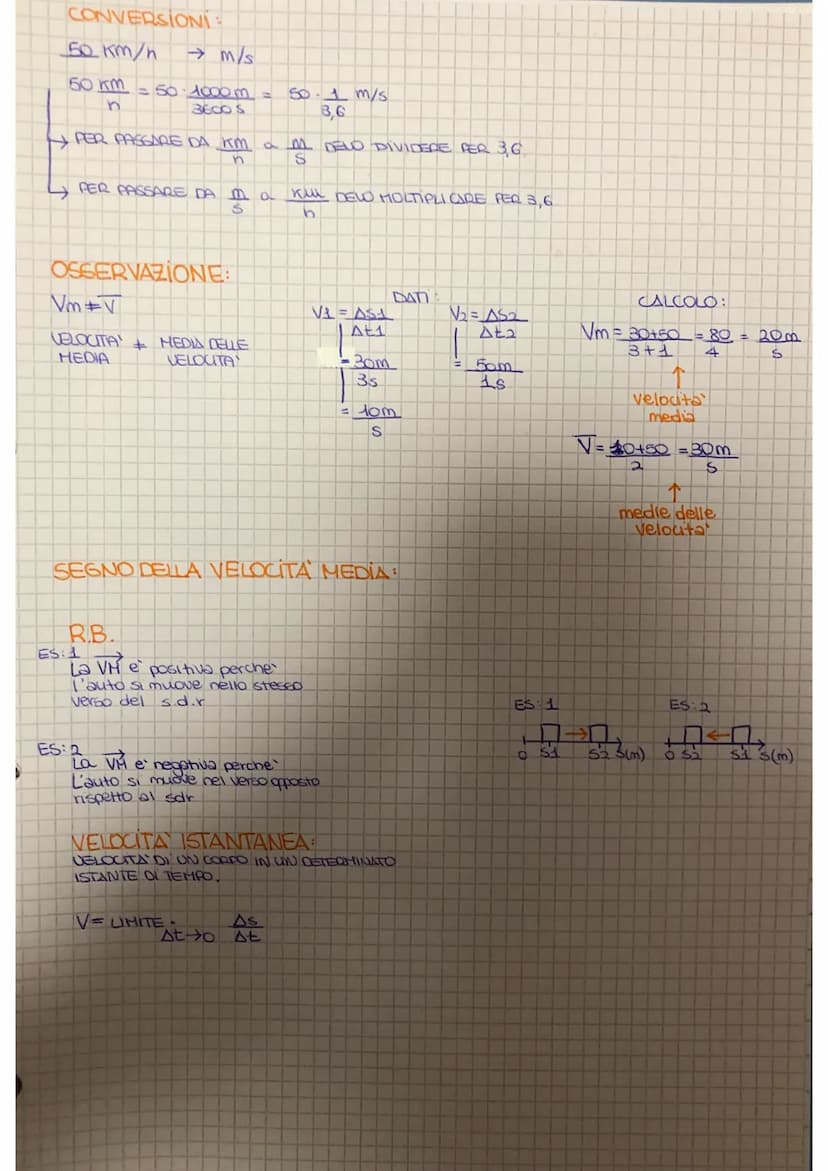 CONVERSIONI:
50 km/h → m/s
50 km/h = 50 · 1000m/3600s = 50 · 1/3,6 m/s
↳ PER PASSARE DA km/h a m/s DEVO DIVIDERE PER 3,6
↳ PER PASSARE DA m/s a km/h DEVO MOLTIPLICARE PER 3,6
OSSERVAZIONE:
Vm ≠ V̅
VELOCITA' ≠ MEDIA DELLE
MEDIA VELOCITA'
DATI:
V1 = ΔS1/Δt1
= 30m/3s
= 10m/s
V2 = ΔS2/Δt2
= 50m/1s
CALCOLO:
Vm = 30+50/3+1 = 80/4 = 20m/s
↑
velocita'
media
V̅ = 10+50/2 = 30m/s
↑
medie delle
velocita'
SEGNO DELLA VELOCITA' MEDIA:
R.B.
ES:1
La VM e' positiva perche'
l'auto si muove nello stesso
verso del s.d.r
ES:2
La VM e' negativa perche'
L'auto si muove nel verso opposto
rispetto al sdr
ES:1
0 S1 → S2 S(m)
ES:2
0 S2 ← S1 S(m)
VELOCITA' ISTANTANEA:
VELOCITA' DI UN CORPO IN UN DETERMINATO
ISTANTE DI TEMPO.
V = LIMITE Δt→0 ΔS/Δt